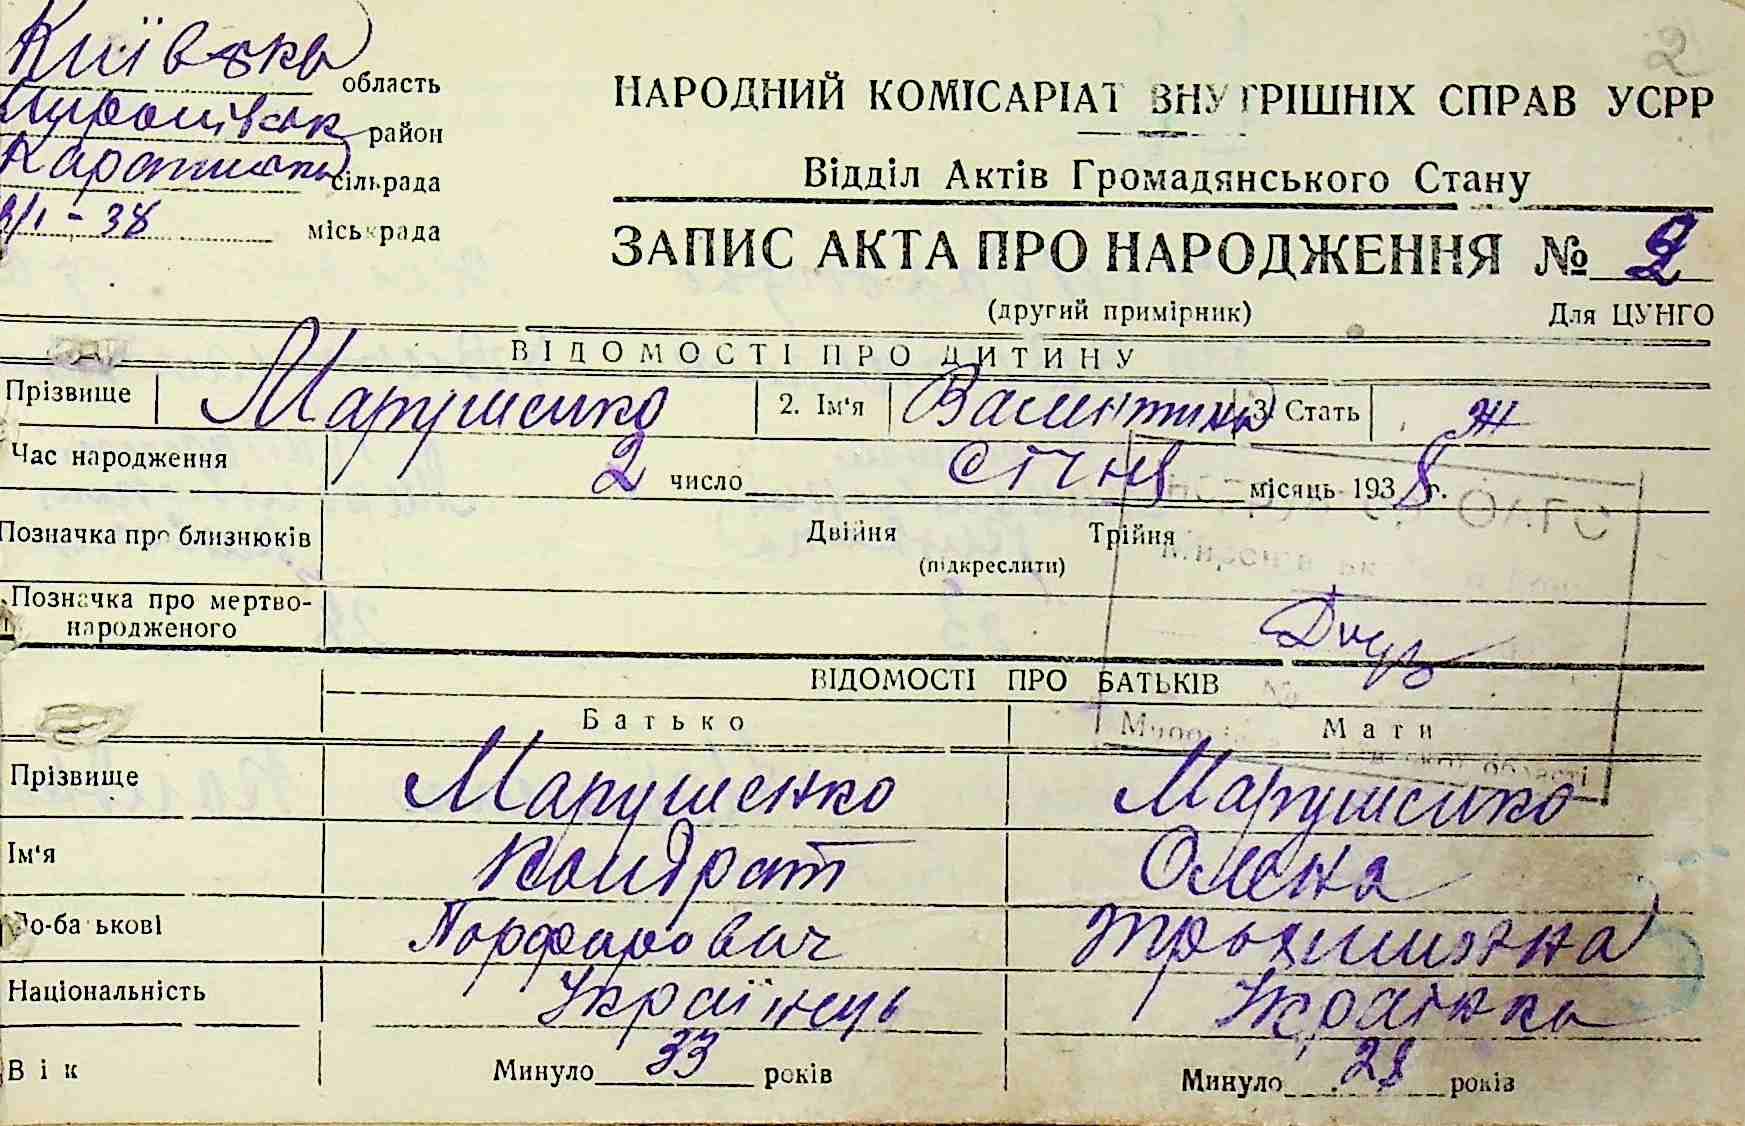 2
Київська область
район
сільрада
/I - 38 міськрада
НАРОДНИЙ КОМІСАРІАТ ВНУТРІШНІХ СПРАВ УСРР
Відділ Актів Громадянського Стану
ЗАПИС АКТА ПРО НАРОДЖЕННЯ № 2
(другий примірник) Для ЦУНГО
ВІДОМОСТІ ПРО ДИТИНУ
Прізвище Марушенко 2. Ім'я Валентина 3. Стать ж
Час народження 2 число січня місяць 1938 г.
Позначка про близнюків Двійня Трійня
(підкреслити)
Позначка про мертво-
народженого
ВІДОМОСТІ ПРО БАТЬКІВ
Батько Мати
Прізвище Марушенко Марушенко
Ім'я Кондрат Олена
По-батькові Порфирович Трохимівна
Національність Українець Українка
Вік Минуло 33 років Минуло 28 років